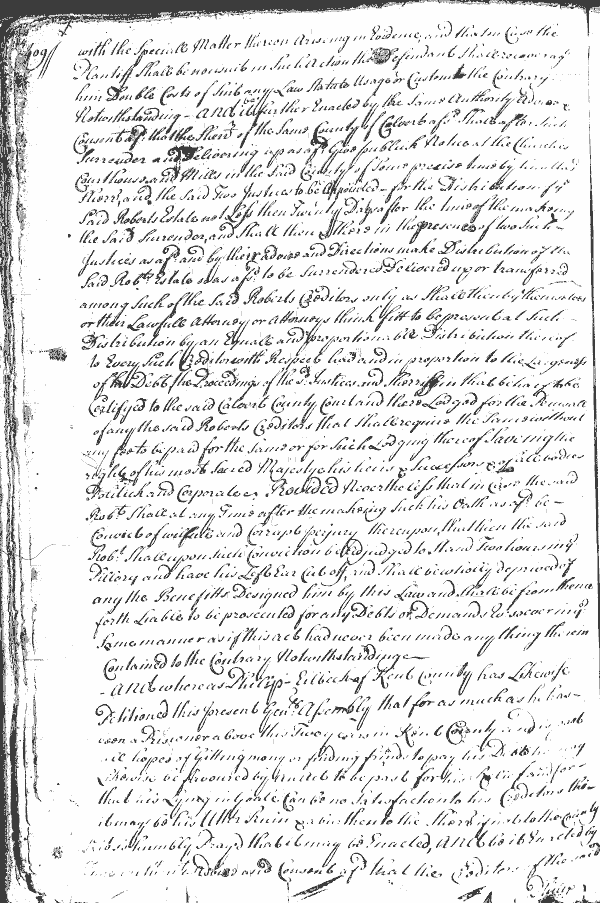 409
with the Speciall Matter thereon Arising in Evidence, and that in Case the
Plantiff Shall be nonsuit in Such Action the Defendant Shall recover ag.t
him Double Costs of Suit any Law Statute Usage or Custom to the Contrary
Notwithstanding - And be it further Enacted by the Same Authority Advice &
Consent afd that the Sherr of the Same County of Calvert afd Shall after Such
Surrender and Delivering up as afd give publick Notice at the Churches
Courthouse, and Mills in the Said County of Some precise time by him the Sd
Sherr, and the Said Two Justices to be Appointed - for the Distribution of ye
Said Roberts Estate not Less then Twenty Days after the time of the making
the Said Surrender, and Shall then & there in the presence of two Such -
Justices as afd, and by their Advice and Directions make Distribution of the
Said Robts Estate so as afd to be Surrendered Delivered up or transferred
among Such of the Said Roberts Creditors only as Shall then by themselves
or their Lawfull Attorney or Attorneys think fitt to be present at Such -
Distribution by an Equall and proportionable Distribution thereof
to Every Such Creditor with Respect had and in proportion to the Largeness
of the Debt, the Proceedings of the sd Justices and Sherriff in that behalf to be
Certifyed to the said Calvert County Court and there Lodged for the Perusall
of any the said Roberts Creditors that Shall require the Same without
any fee to be paid for the Same or for Such Lodging thereof Saveing the
rights of his most Sacred Majesty his heirs & Successors & of all bodies
Politick and Corporate &c Provided Nevertheless that in Case the said
Robt Shall at any Time after the making Such his Oath as afd be -
Convict of wilfull and Corrupt perjury thereupon, that then the said
Robt Shall upon Such Conviction be adjudged to Stand Two hours in ye
Pillory and have his Left Ear Cut off, and Shall be wholly deprived of
any the Benefitts Designed him by this Law and Shall be from thence
forth Liable to be prosecuted for any Debts or Demands Whatsoever in ye
Same manner as if this act had never been made any thing therein
Contained to the Contrary Notwithstandinge -
- And whereas Philip - of Kent County has Likewise
Petitioned this present Genll Assembly that for as much as he has -
been a Prisoner above this Two years in Kent County and is past
all hopes of Gitting mony or finding friends to pay his Debts he may
Likewise be favoured by an Act to be past for his Relief and for -
that his Lying in Goale Can be no Satisfaction to his Creditors tho -
it may be his Utter Ruin & a burthen to the Sherr if not to the County
humbly Prayd that it may be Enacted, And be it Enacted by
Advice and Consent afd that the Creditors of the said
Philip